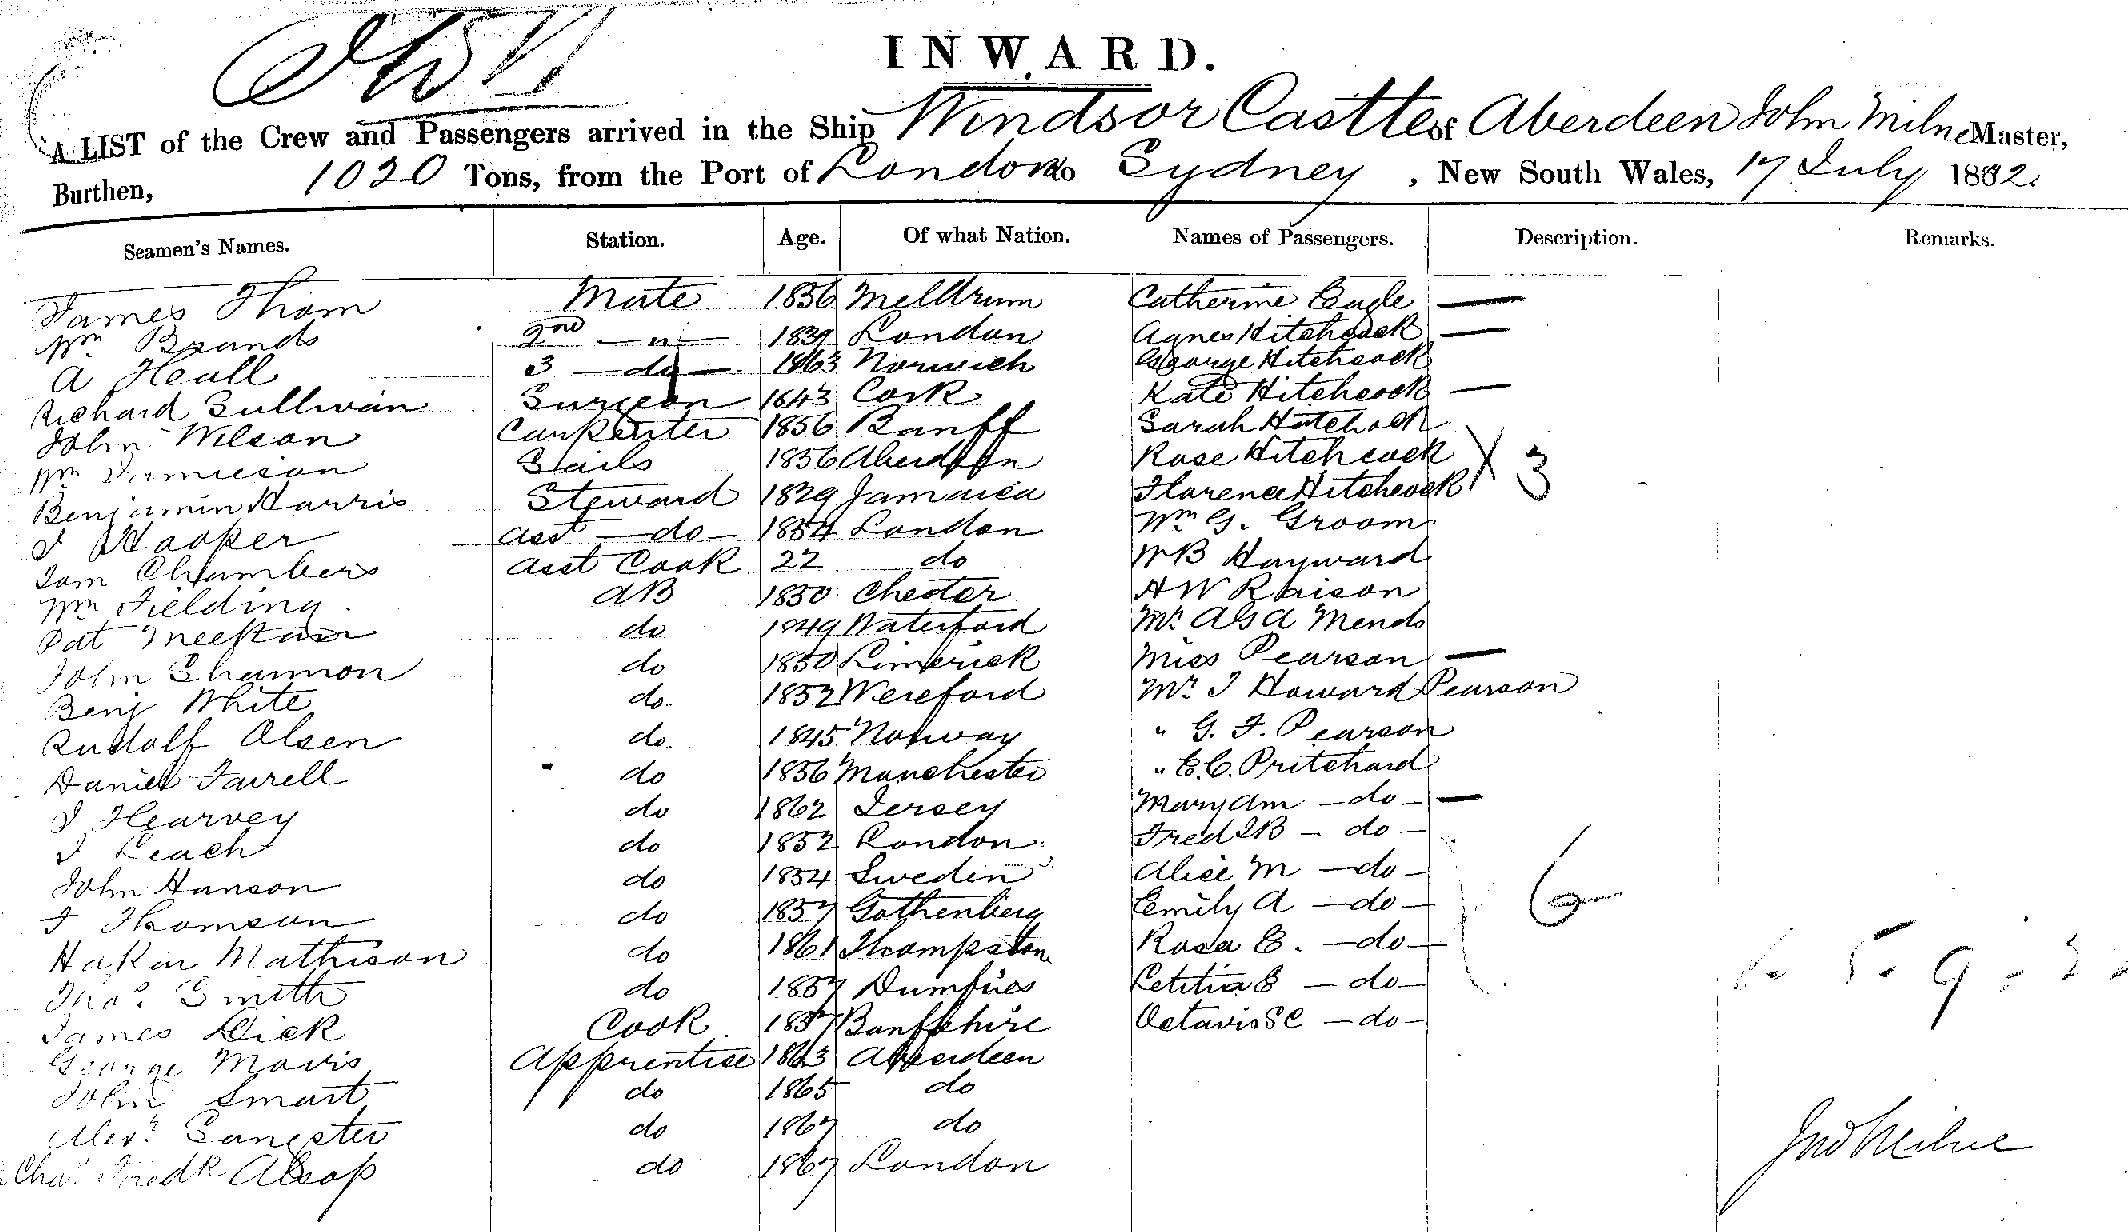 INWARD.
A LIST of the Crew and Passengers arrived in the Ship Windsor Castle of Aberdeen John Milne Master,
Burthen, 1020 Tons, from the Port of London to Sydney, New South Wales, 17 July 1882.
Seamen's Names. Station. Age. Of what Nation. Names of Passengers. Description. Remarks.
James Thom Mate 1856 Meldrum Catherine Eagle —
Wm Brands 2nd — " — London Agnes Hitchcock —
A Heall 3 — do — 1863 Norwich George Hitchcock
Richard Sullivan Surgeon 1843 Cork Kate Hitchcock —
John Wilson Carpenter 1856 Banff Sarah Hitchcock
Wm Jamieson Sails 1856 Aberdeen Rose Hitchcock
Benjamin Harris Steward 1829 Jamaica Florence Hitchcock X 3
J Hooper asst — do — 1854 London Wm G. Groom
Tom Chambers asst Cook 22 do W B Hayward
Wm Fielding. AB 1850 Chester A W Raison
Pat do 1849 Waterford Mr A G A Mends
John Shannon do 1850 Limerick Miss Pearson —
Benj White do. 1852 Hereford Mr J Howard Pearson
Rudolf Olsen do. 1845 Norway " G. F. Pearson
Daniel Farrell do 1856 Manchester " E. C. Pritchard
J Hearvey do 1862 Jersey Mary Ann — do — —
J Leach do 1852 London Fred J B — do —
John Hanson do 1854 Sweden Alice M — do —
J Thomson do 1857 Gothenberg Emily A — do — 6
Hakin Mathison do 1861 Thompston Rosa E. — do —
Thos. Smith do 1857 Dumfries Letitia E — do —
James Dick Cook 1857 Banffshire Octavis S C — do —
George Mavis Apprentice 1863 Aberdeen
John Smart do 1865 do
Alexr. Sangster do 1867 do
Chas. Fredk Alsop do 1867 London
Jno Milne